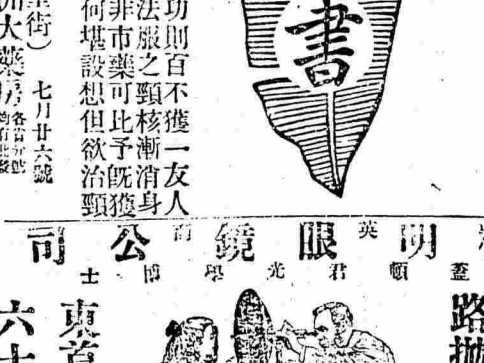 書
功則百不獲一友人
法服之頸核漸消身
非市藥可比予既獲
何堪設想但欲治頸
七月廿六號
街)
洲大藥房
明英眼鏡公司
蓋頓君光學博士
路拋
東首
六十